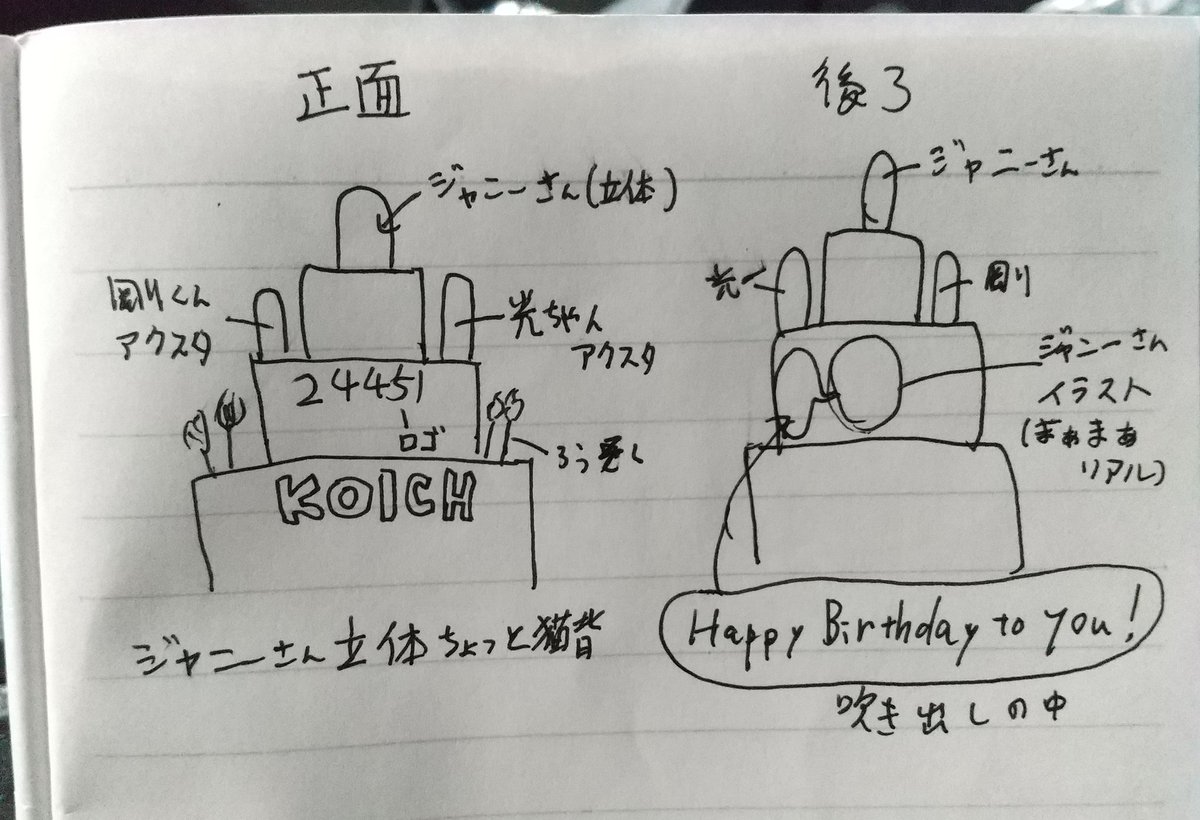 正面
ジャニーさん(立体)
剛りくん
アクスタ
光ちゃん
アクスタ
24451
ロゴ
ろう
KOICH
ジャニーさん立体ちょっと猫背
後ろ
ジャニーさん
光
剛り
ジャニーさん
イラスト
(まぁまあ
リアル)
Happy Birthday to you!
吹き出しの中